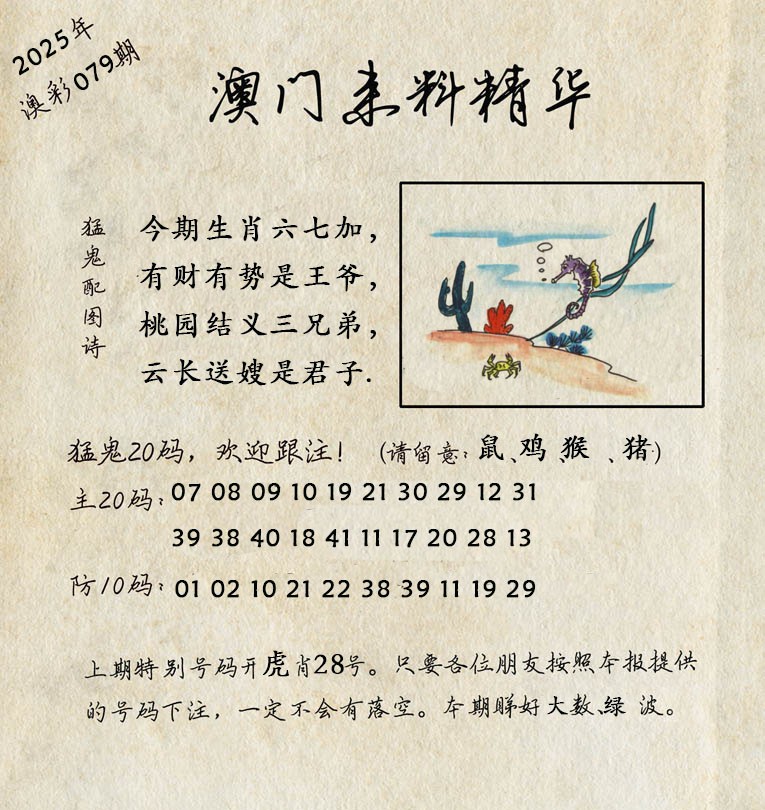 2025年
澳彩079期
澳门来料精华
猛鬼配图诗
今期生肖六七加，
有财有势是王爷，
桃园结义三兄弟，
云长送嫂是君子.
猛鬼20码，欢迎跟注！（请留意：鼠、鸡、猴、猪）
主20码：07 08 09 10 19 21 30 29 12 31
39 38 40 18 41 11 17 20 28 13
防10码：01 02 10 21 22 38 39 11 19 29
上期特别号码开虎肖28号。只要各位朋友按照本报提供
的号码下注，一定不会有落空。本期睇好大数、绿 波。